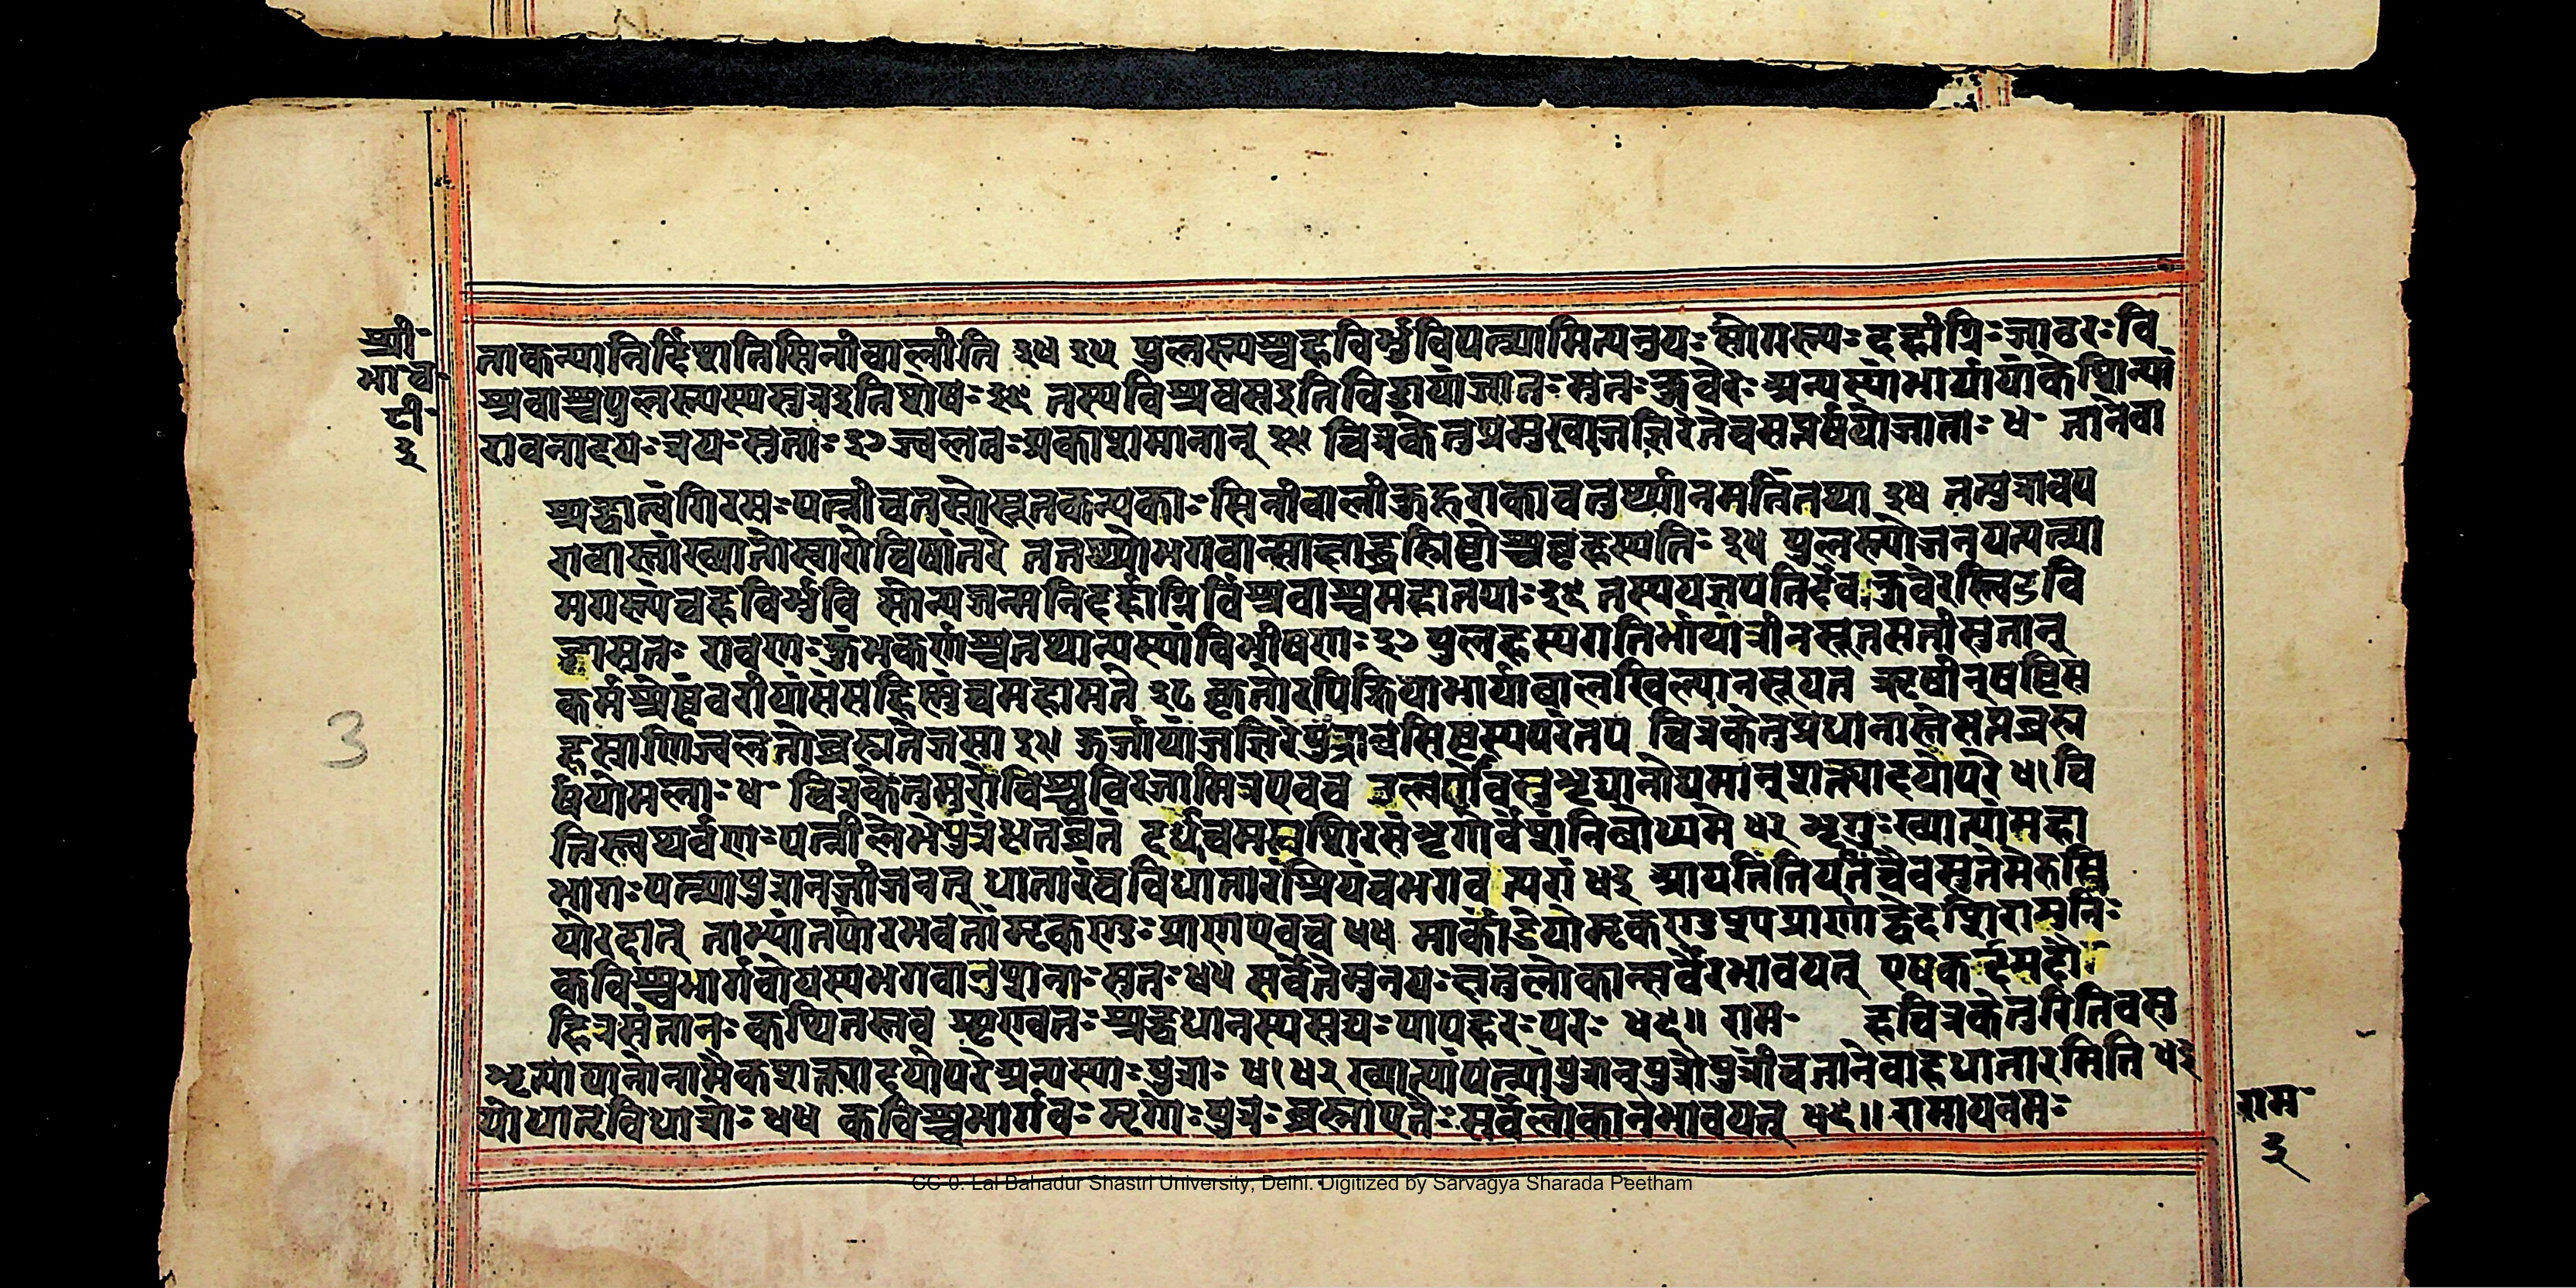 श्री·
भा·च·
टी·
३
ताकन्यानिर्दिशतिसिनीवालीति ३४ ३५ पुलस्त्यश्चहविर्भुविपत्न्यामित्यनुषः
श्रवाश्चपुलस्त्यस्यसुतइतिशेषः३६ तस्यविश्रवसइतिविडायांजातःसुतःकुबेरः अन्यस्यांभार्यायांकेशिन्यां
रावनादयःत्रयःसुताः३७ज्वलतःप्रकाशमानान् ३९ चित्रकेतुप्रमुखाजज्ञिरेतेचसप्तर्षयोजाताः ४० तानेवा
श्रद्धात्वंगिरसःपत्नीचतस्रोसूतकन्यकाः सिनीवालीकुहूराकाचतुर्थ्यनुमतिस्तथा ३४ तत्पुत्रावप
रावास्तांख्यातोस्वारोचिषेंतरे उतथ्योभगवान्साक्षाद्ब्रह्मिष्टोश्चबृहस्पतिः ३५ पुलस्त्योजनयत्पत्न्या
मगस्त्यंचहविर्भुवि सोन्यजन्मनिदह्राग्निर्विश्रवाश्चमहातपाः३६ तस्ययक्षपतिर्देवःकुबेरस्त्विडवि
डासुतः रावणःकुंभकर्णश्चतथान्यस्यांविभीषणः३७ पुलहस्यगतिर्भार्यात्रीनसूतसतीसुतान्
कर्मश्रेष्ठंवरीयांसंसहिष्णुंचमहामते ३८ क्रतोरपिक्रियाभार्यावालखिल्यानसूयत ऋषीन्षष्टिस
हस्राणिज्वलतोब्रह्मतेजसा ३९ ऊर्जायांजज्ञिरेपुत्रावसिष्ठस्यपरंतप चित्रकेतुप्रधानास्तेसप्तब्रह्म
र्षयोमलाः ४० चित्रकेतुसुरोचिश्चविरजामित्रएवच उल्वणोवसुभृद्यानोद्युमान्शक्त्यादयोपरे ४१ चि
त्तिस्त्वथर्वणःपत्नीलेभेपुत्रंधृतव्रतं दध्यंचमश्वशिरसंभृगोर्वंशंनिबोधमे ४२ भृगुःख्यात्यांमहा
भागःपत्न्यांपुत्रानजीजनत् धातारंचविधातारंश्रियंचभगवत्परां ४३ आयतिंनियतिंचैवसुतेमेरुस्त
योरदात् ताभ्यांतयोरभवतांमृकण्डःप्राणएवच ४४ मार्कंडेयोमृकण्डुस्यप्राणाद्वेदशिरामुनिः
कविश्चभार्गवोयस्यभगवानुशनाःसुतः ४५ सर्वेतेमुनयःक्षत्तर्लोकान्सर्गैरभावयन् एषकर्दमदौ
हित्रसंतानःकथितस्तव शृण्वतःश्रद्दधानस्यसद्यःपापहरःपरः ४६॥ राम· हचित्रकेतुरितिवसु
भृत्यायानोनामैकःशक्त्यादयोपरेअन्यस्याःपुत्राः ४१ ४२ ख्यात्यांपत्न्यांपुत्रौचपुत्रींचतानेवाहधातारमिति ४३
योधातृविधात्रोः ४४ कविश्चभार्गवःभृगोःपुत्रः सर्वलोकानभावयन् ४६॥ रामायनमः
राम·
३
3
CC-0. Lal Bahadur Shastri University, Delhi. Digitized by Sarvagya Sharada Peetham